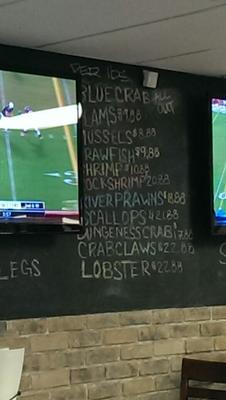 PER LBS
BLUE CRAB ALL OUT
LAMS $9.88
USSELS $8.88
RAWFISH $9.88
HRIMP $10.88
OCK SHRIMP 20.88
RIVER PRAWNS $18.88
SCALLOPS $21.88
DUNGENESS CRAB 7.88
CRAB CLAWS $22.88
LOBSTER $22.88
LEGS